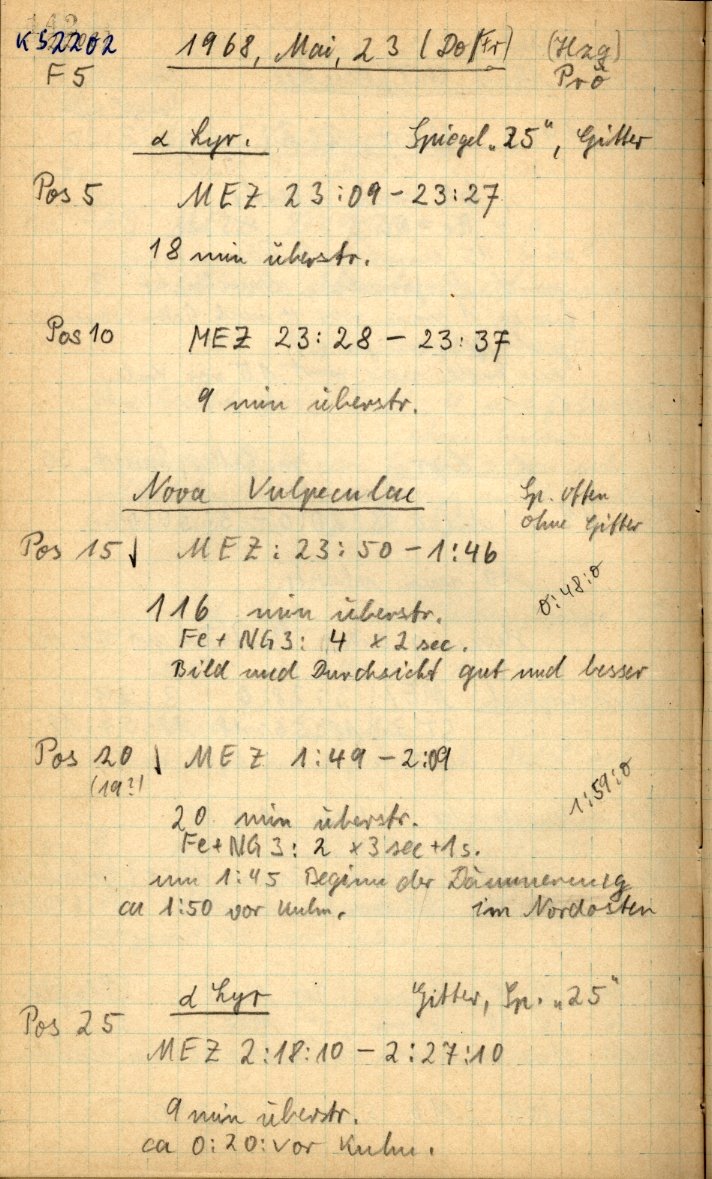 K52202 1968, Mai, 23 (Do/Fr) (Hzg)
F5 Prö
α Lyr. Spiegel „25“, Gitter
Pos 5 MEZ 23:09 – 23:27
18 min überstr.
Pos 10 MEZ 23:28 – 23:37
9 min überstr.
Nova Vulpeculae Sp. offen
ohne Gitter
Pos 15 ↓ MEZ: 23:50 – 1:46
0:48:0
116 min überstr.
Fe + NG3: 4 x 2 sec.
Bild und Durchsicht gut und besser
Pos 20 ↓ MEZ 1:49 – 2:09
(19?)
1:59:0
20 min überstr.
Fe + NG3: 2 x 3 sec + 1s.
um 1:45 Beginn der Dämmerung
ca 1:50 vor Kulm. im Nordosten
α Lyr Gitter, Sp. „25“
Pos 25
MEZ 2:18:10 – 2:27:10
9 min überstr.
ca 0:20: vor Kulm.